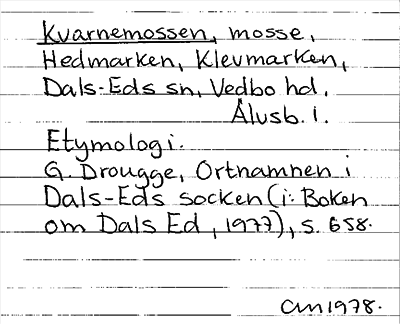 Kvarnemossen, mosse,
Hedmarken, Klevmarken,
Dals-Eds sn, Vedbo hd,
Älvsb. l.
Etymologi.
G. Drougge, Ortnamnen i
Dals-Eds socken (i: Boken
om Dals Ed, 1977), s. 658.
CM 1978.